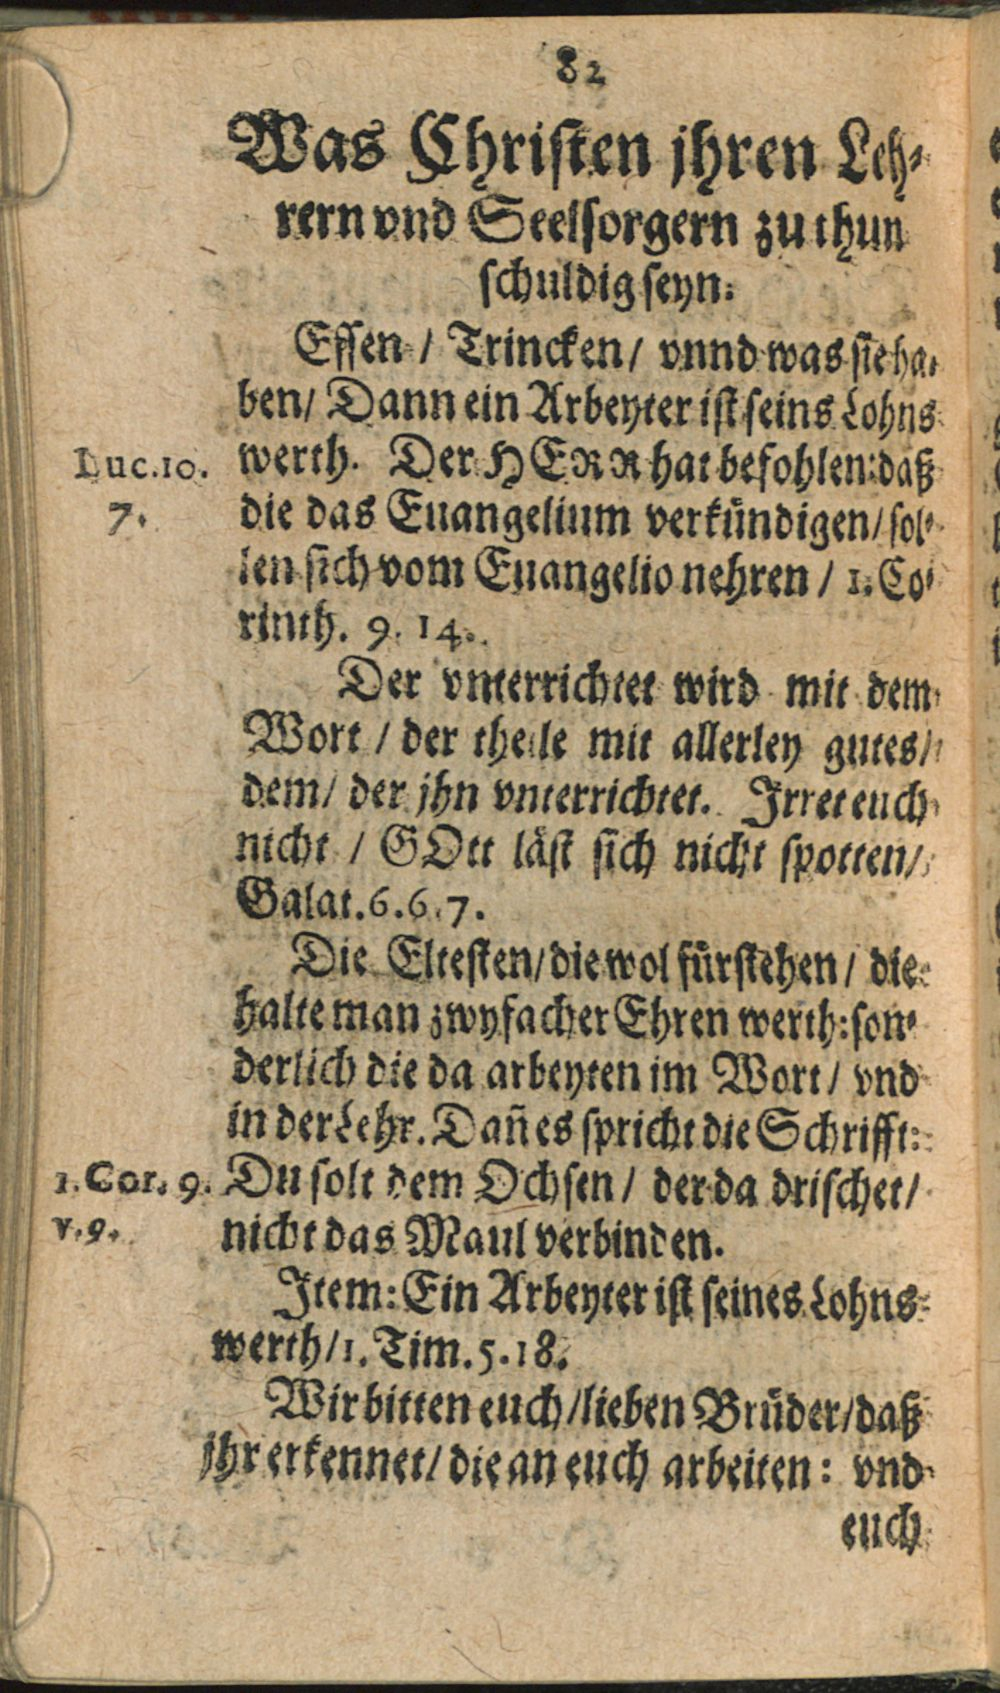 82
Was Christen jhren Leh-
rern vnd Seelsorgern zu thun
schuldig seyn:
Essen / Trincken / vnnd was sie ha-
ben / Dann ein Arbeyter ist seins Lohns
Luc.10. werth. Der HERR hat befohlen: daß
7. die das Euangelium verkündigen / sol-
len sich vom Euangelio nehren / 1. Co-
rinth. 9. 14.
Der vnterrichtet wird mit dem
Wort / der theile mit allerley gutes /
dem / der jhn vnterrichtet. Irret euch
nicht / GOtt läst sich nicht spotten /
Galat. 6. 6. 7.
Die Eltesten / die wol fürstehen / die
halte man zwyfacher Ehren werth: son-
derlich die da arbeyten im Wort / vnd
in der Lehr. Dañ es spricht die Schrifft:
1. Cor. 9. Du solt dem Ochsen / der da drischet /
v. 9. nicht das Maul verbinden.
Item: Ein Arbeyter ist seines Lohns
werth / 1. Tim. 5. 18.
Wir bitten euch / lieben Brüder / daß
jhr erkennet / die an euch arbeiten: vnd
euch